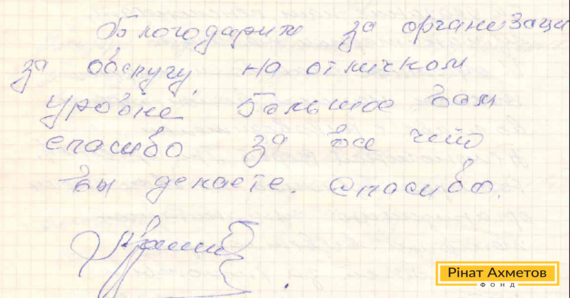 Блогодарим за организаци
за обслугу. на отличном
уровне Большое вам
спасибо за все что
вы делаете. Спасибо.
Рінат Ахметов
ФОНД